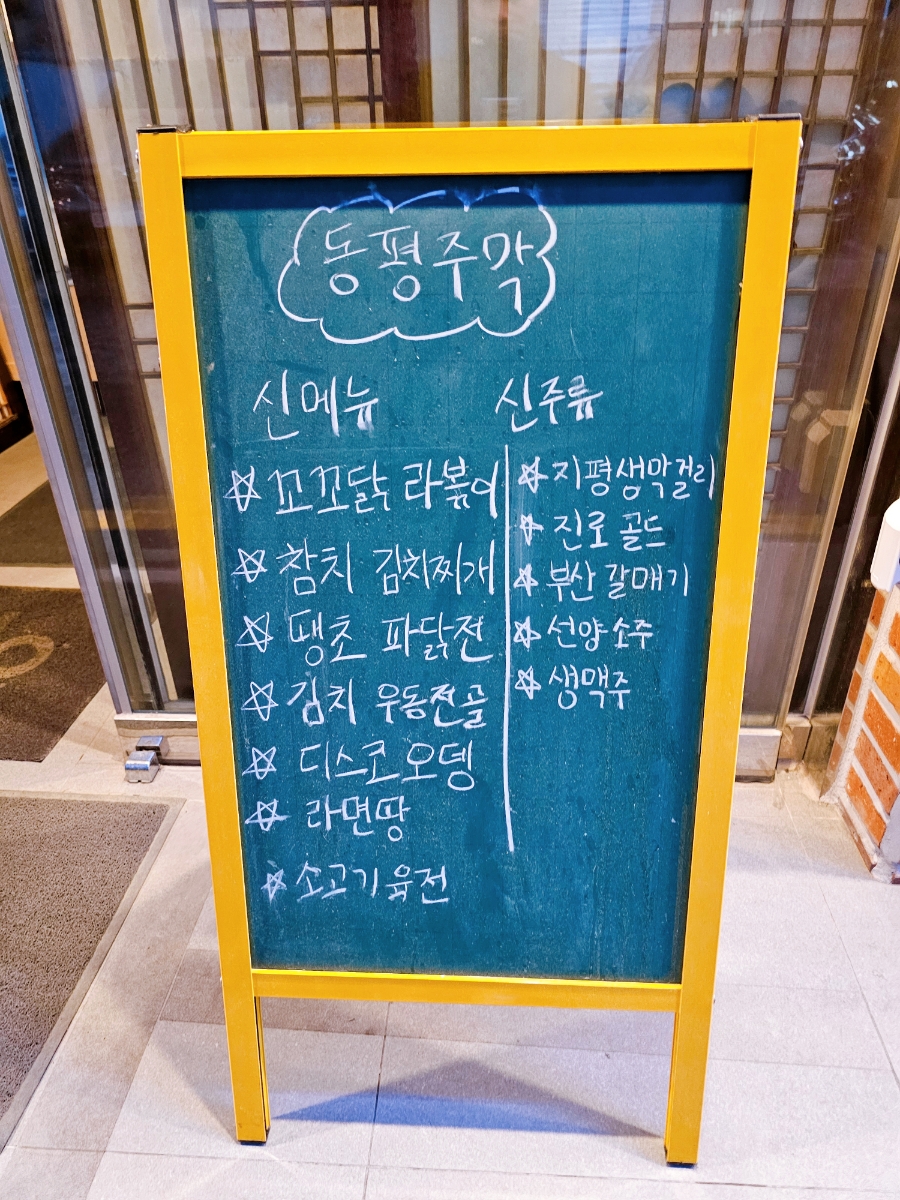 동평주막
신메뉴
☆ 꼬꼬닭 라볶이
☆ 참치 김치찌개
☆ 땡초 파닭전
☆ 김치 우동전골
☆ 디스코오뎅
☆ 라면땅
☆ 소고기육전
신주류
☆ 지평생막걸리
☆ 진로 골드
☆ 부산 갈매기
☆ 선양 소주
☆ 생맥주